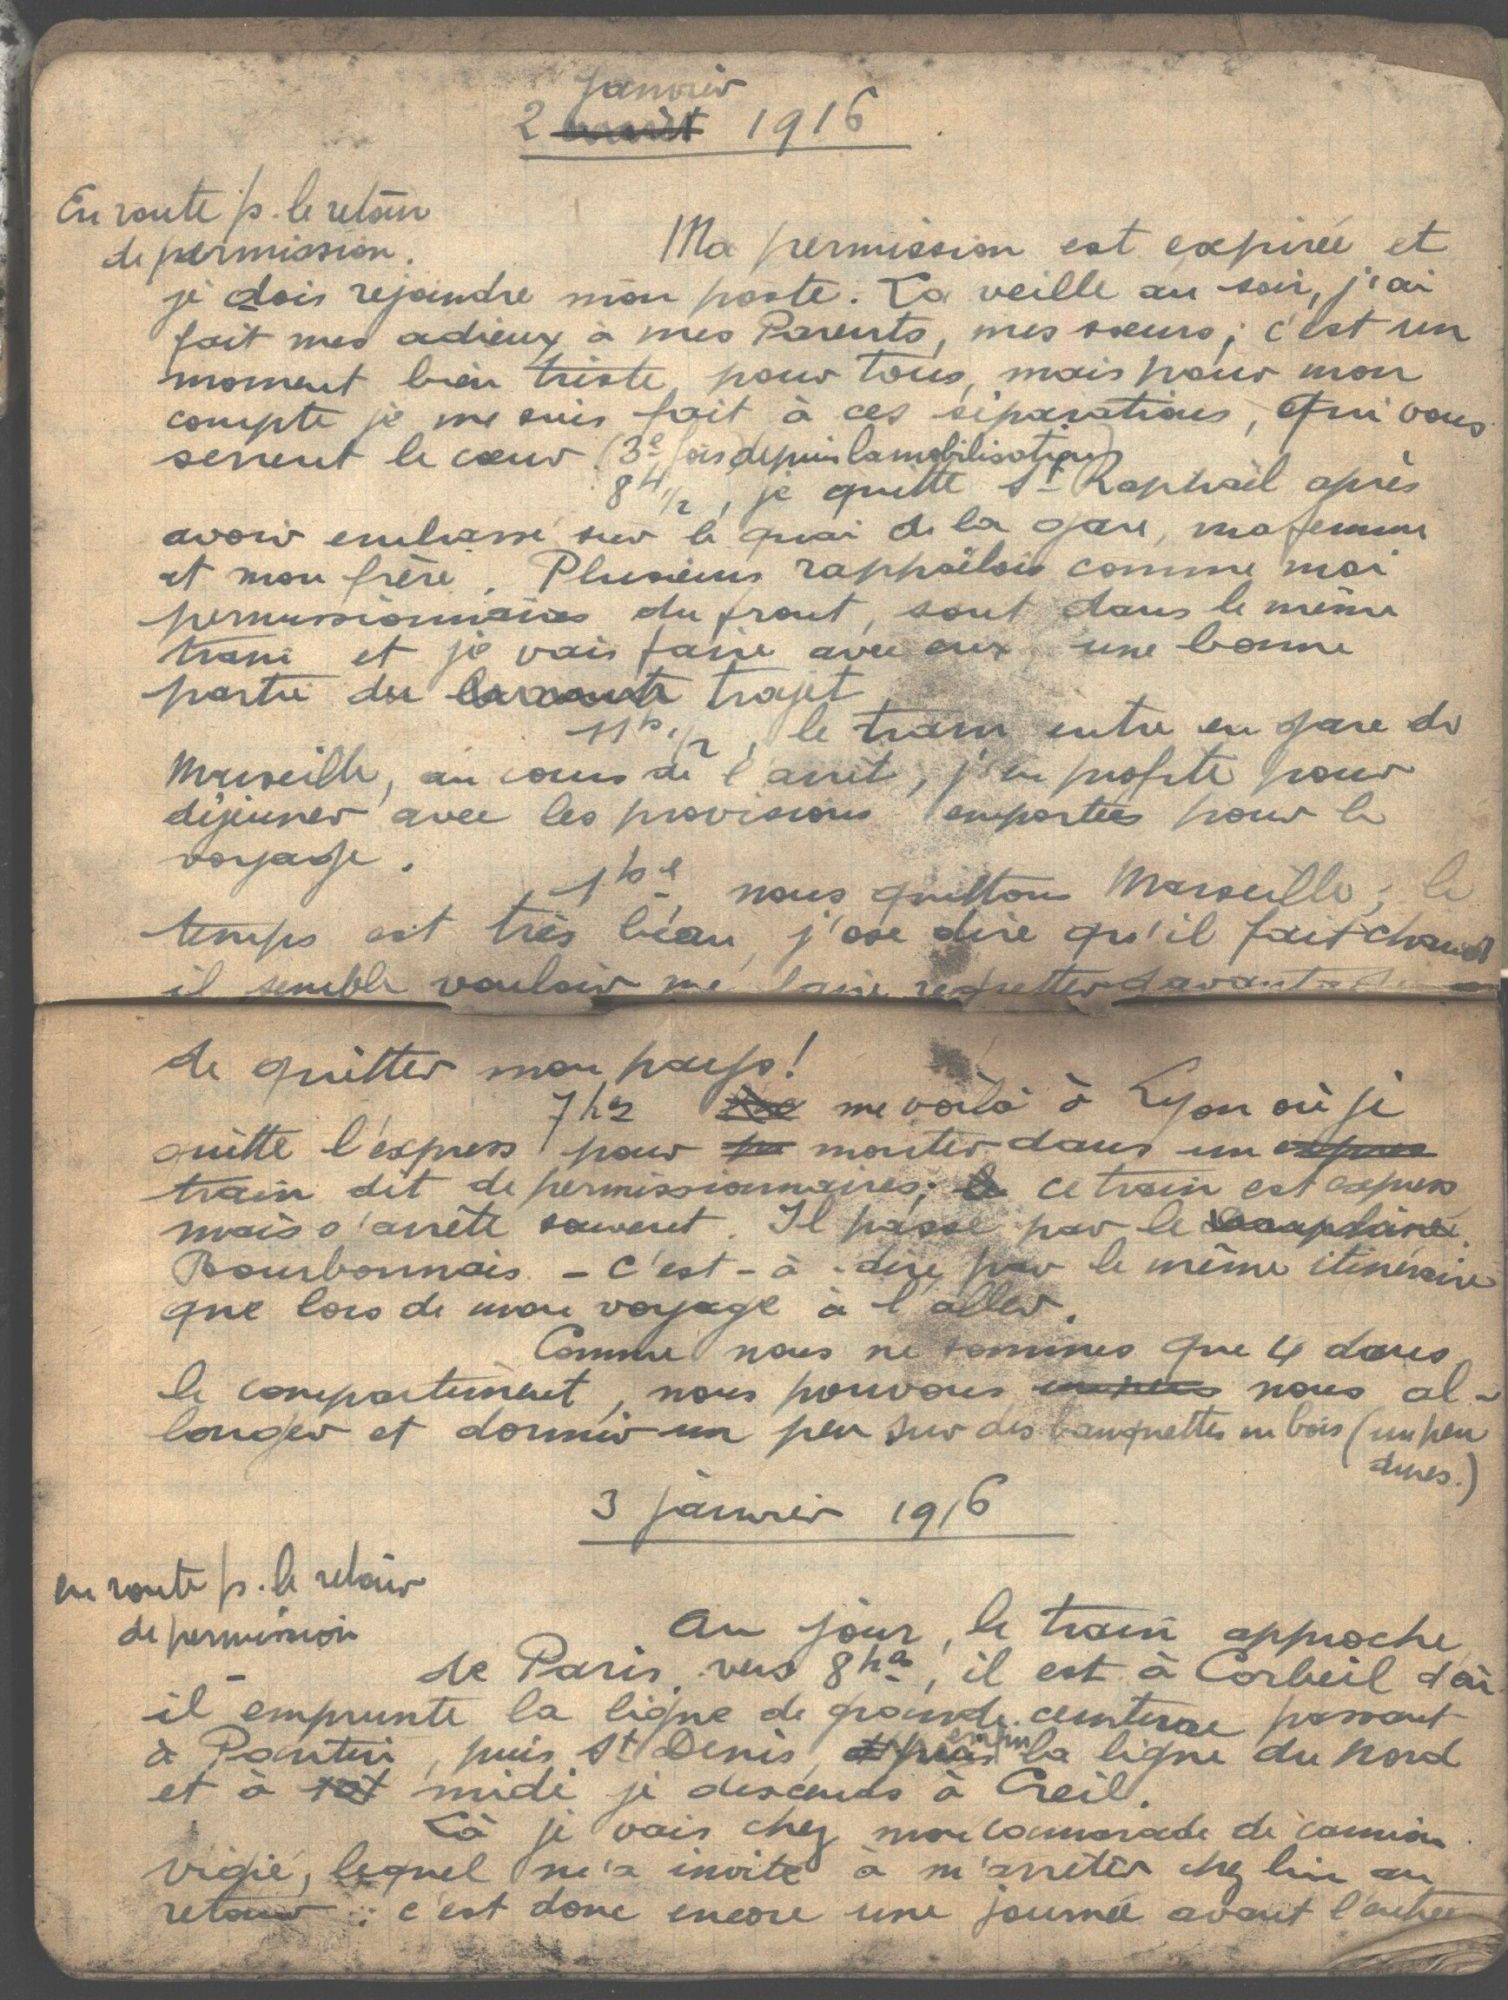 Janvier
2 1916
En route p. le retour
de permission.
Ma permission est expirée et
je dois rejoindre mon poste. La veille au soir, j'ai
fait mes adieux à mes Parents, mes sœurs; c'est un
moment bien triste pour tous, mais pour mon
compte je me suis fait à ces séparations, qui vous
serrent le cœur (3e fois depuis la mobilisation)
8h 1/2, je quitte St Raphaël après
avoir embrassé sur le quai de la gare, ma femme
et mon frère. Plusieurs raphaëlois comme moi
permissionnaires du front, sont dans le même
train et je vais faire avec eux une bonne
partie du la route trajet
11h 1/2, le train entre en gare de
Marseille, au cours de l'arrêt, j'en profite pour
déjeuner avec les provisions emportées pour le
voyage.
1h nous quittons Marseille; le
temps est très beau, j'ose dire qu'il fait chaud
il semble vouloir me faire regretter davantage
de quitter mon pays!
7hes me voilà à Lyon où je
quitte l'express pour monter dans un express
train dit de permissionnaires; ce train est express
mais s'arrête souvent. Il passe par le
Bourbonnais - c'est-à-dire par le même itinéraire
que lors de mon voyage à l'aller.
Comme nous ne sommes que 4 dans
le compartiment, nous pouvons un peu nous al-
longer et dormir un peu sur des banquettes en bois (un peu
dures.)
3 janvier 1916
en route p. le retour
de permission
Au jour, le train approche
de Paris, vers 8hes, il est à Corbeil d'où
il emprunte la ligne de grande ceinture passant
à Pantin, puis St Denis, enfin la ligne du Nord
et à midi je descends à Creil.
Là je vais chez mon camarade de camion
Vigié, lequel m'a invité à m'arrêter chez lui au
retour: c'est donc encore une journée avant l'entrée